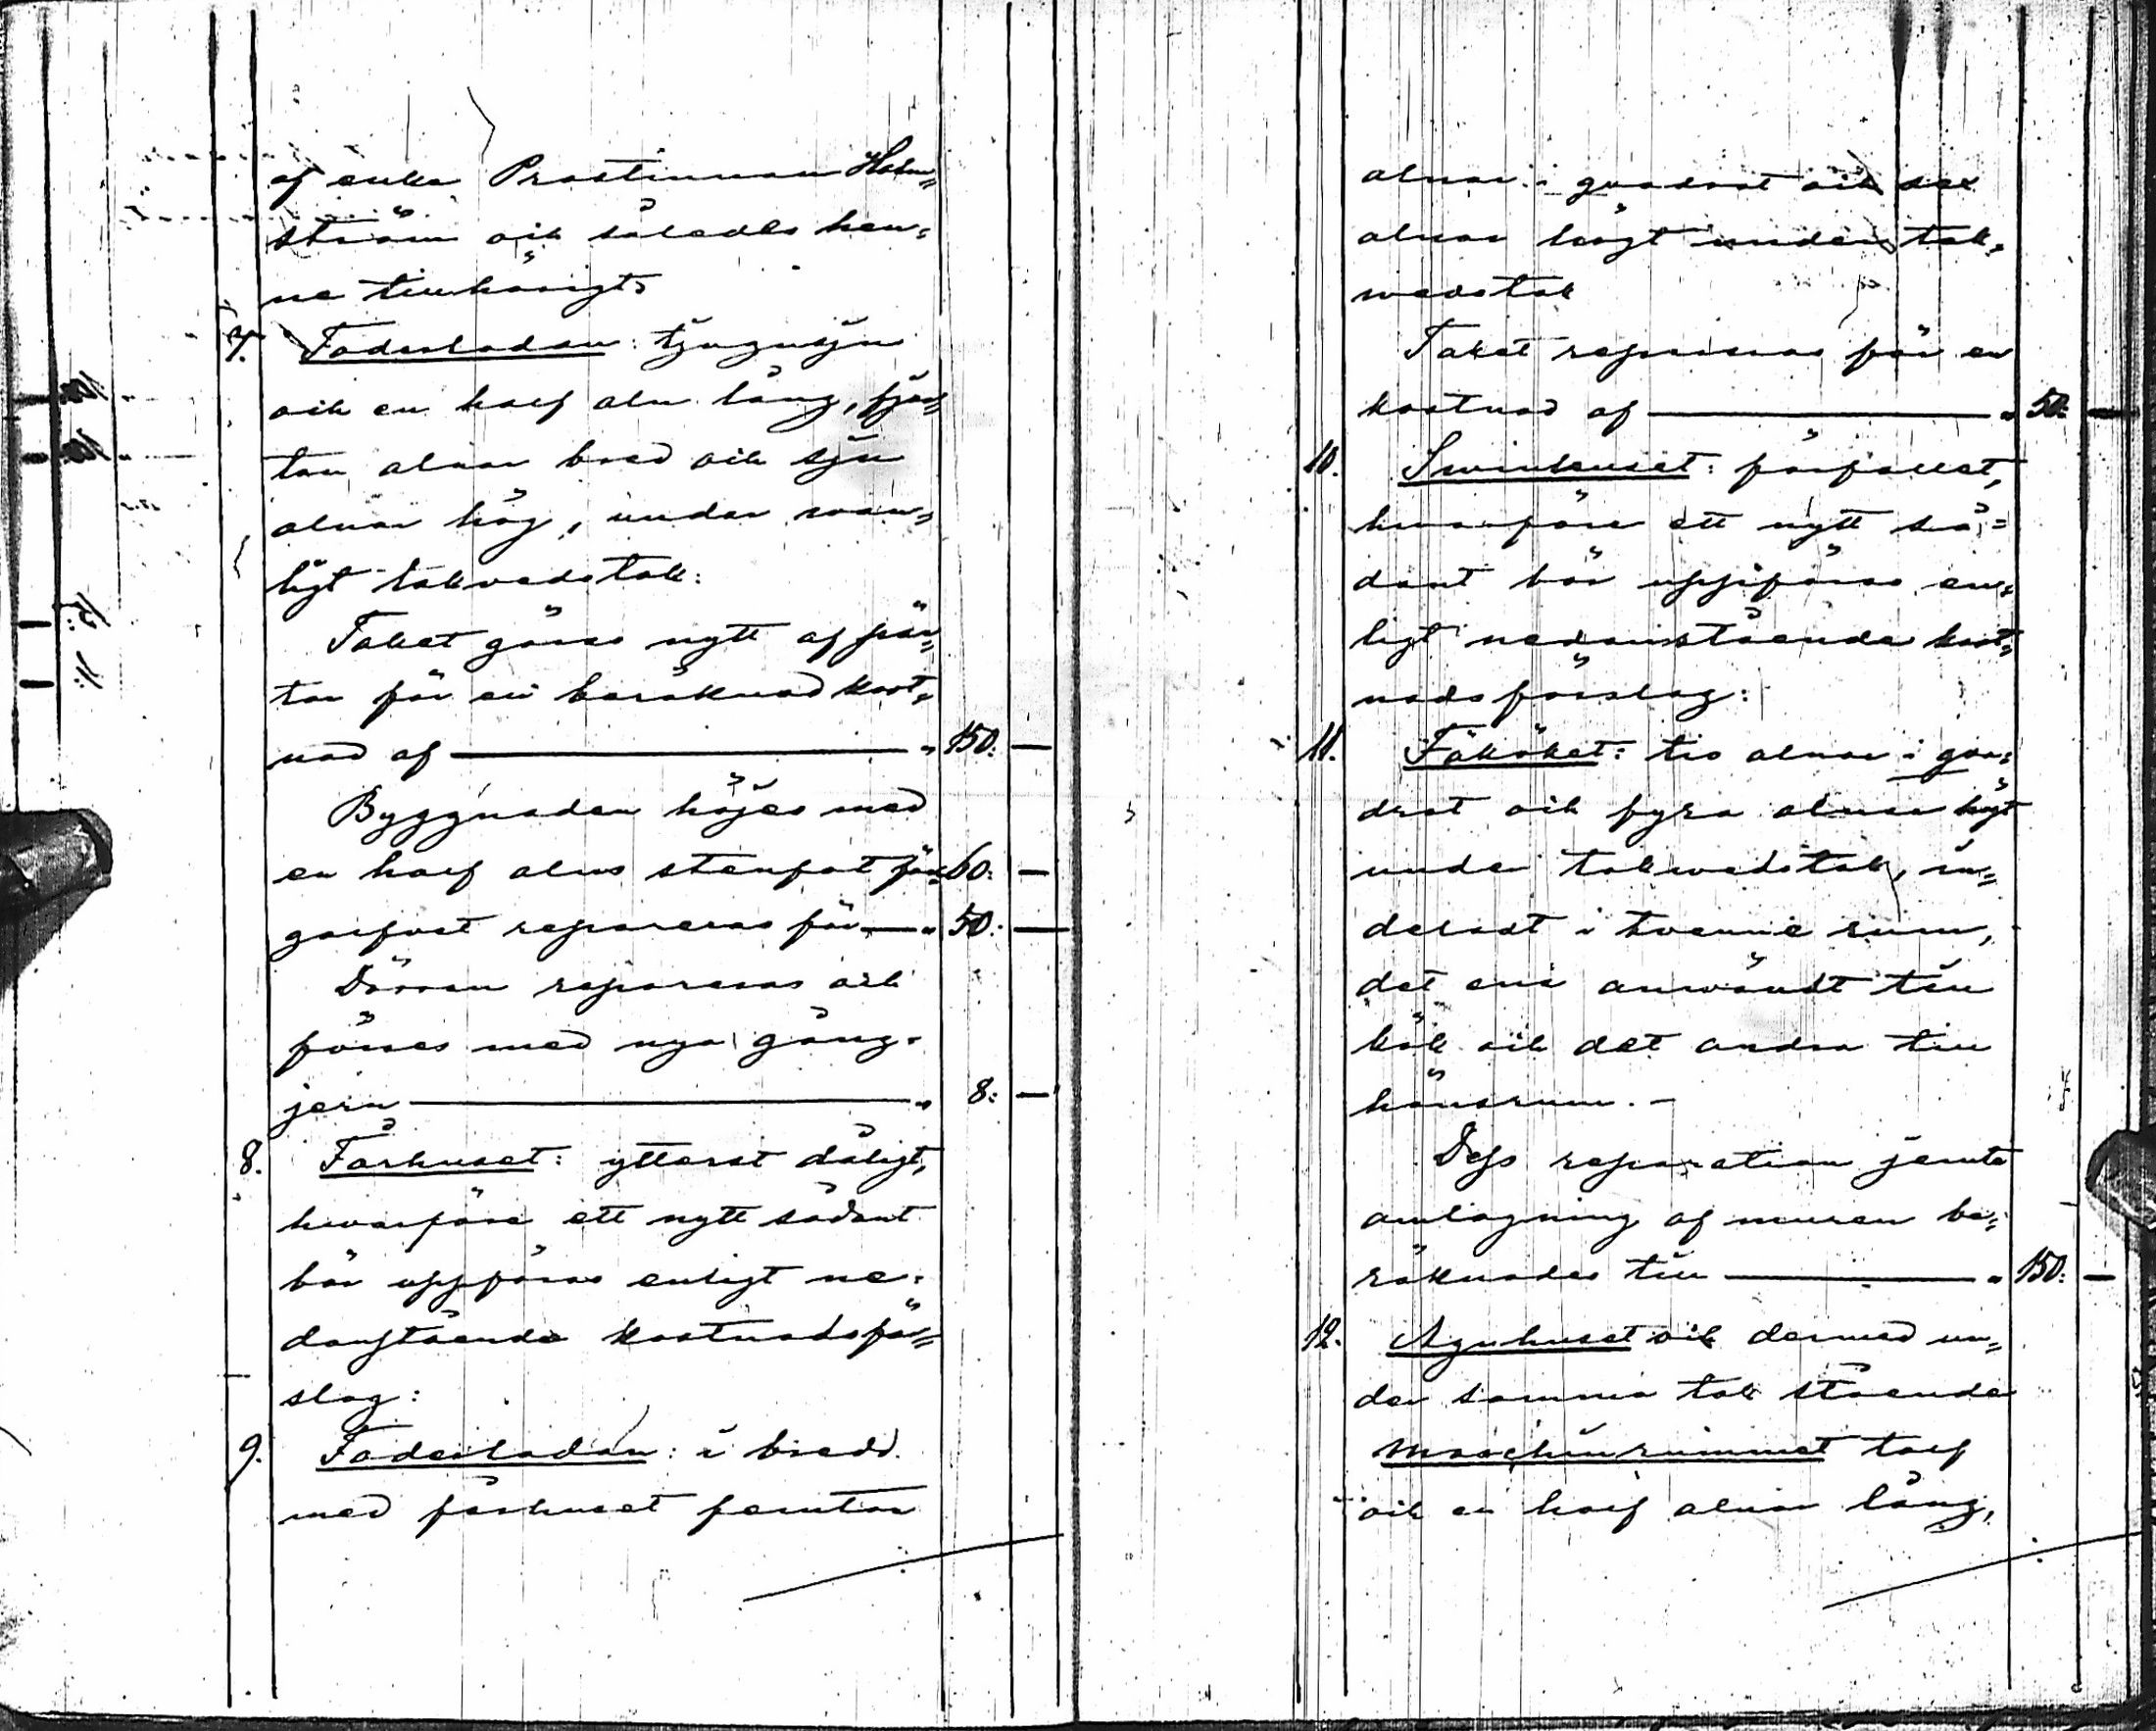 af enka Prostinnan Holm=
ström och således hen=
ne tillhörigt.
7. Foderladan: tjugusju
och en half aln lång, fjor=
ton alnar bred och sju
alnar hög, under van=
ligt takvedstak:
Taket göres nytt af pär=
tor för en beräknad kost=
nad af — " 150. —
Byggnaden höjes med
en half alns stenfot för " 60. —
garfvat repareras för — " 50. —
Dörren repareras och
förses med nya gång=
jern — " 8: —
8. Fårhuset: ytterst dåligt,
hvarföre ett nytt sådant
bör uppföras enligt ne=
danstående kostnadsför=
slag:
9. Foderladan: i bredd
med fårhuset femton
alnar i quadrat och sex
alnar högt under tak=
wedstak
Taket repareras för en
kostnad af — " 50: —
10. Swinhuset: förfallet,
hvarföre ett nytt så=
dant bör uppföras en=
ligt nedanstående kost=
nadsförslag:
11. Fäköket: tio alnar i qva=
drat och fyra alnar högt
under takwedstak, in=
deladt i tvenne rum,
det ena anwändt till
kök och det andra till
hönsrum. —
Dess reparation jemte
omlagning af muren be=
räknades till — " 150: —
12. Agnhuset och dermed un=
der samma tak stående
Maschinrummet tolf
och en half alnar lång,